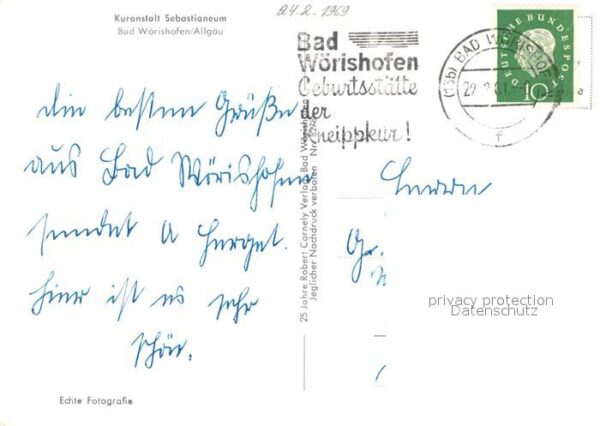 Kuranstalt Sebastianeum
Bad Wörishofen/Allgäu
Bad
Wörishofen
Geburtsstätte
der
Kneippkur!
(13b) BAD WÖRISHOFEN
f
DEUTSCHE BUNDESPOST
10
die besten Grüße
aus Bad Wörishofen
sendet A Herget.
hier ist es sehr
schön.
Herrn
25 Jahre Robert Cornely Verlag Bad Wörishofen
Jeglicher Nachdruck verboten
privacy protection
Datenschutz
Echte Fotografie